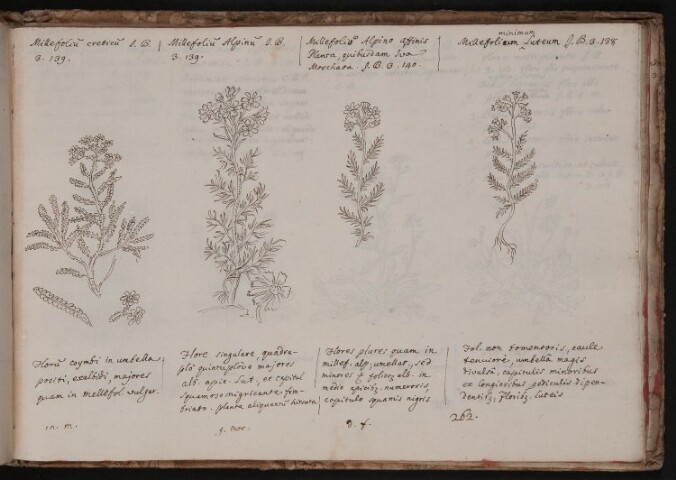 Millefoliū creticū J. B.
3. 139.
Millefoliū Alpinū J. B.
3. 139.
Millefoliū Alpino affinis
Planta, quibusdam Iva
Moschata. J. B. 3. 140.
minimum
Millefolium Luteum J. B. 3. 138
Florū coymbi in umbella
positi, exalbidi, majores
quam in millefol. vulgar.
in. m.
Flore singulare, quadru-
plo quintuplóve majores
alb. apic. Lut., et capitul
squamoso nigricante fim-
briato. planta aliquantū hirsuta
Flores plures quam in
millef. alp. umellat., sed
minores foliis alb. in
medio apicibȝ numerosis,
capitulo squamis nigris
D. f.
Fol. non tomentosis, caule
tenuiore, umbella magis
divulsa, capitulis minoribus
ex longioribus pediculis dipen-
dentibȝ, floribȝ luteis
262.